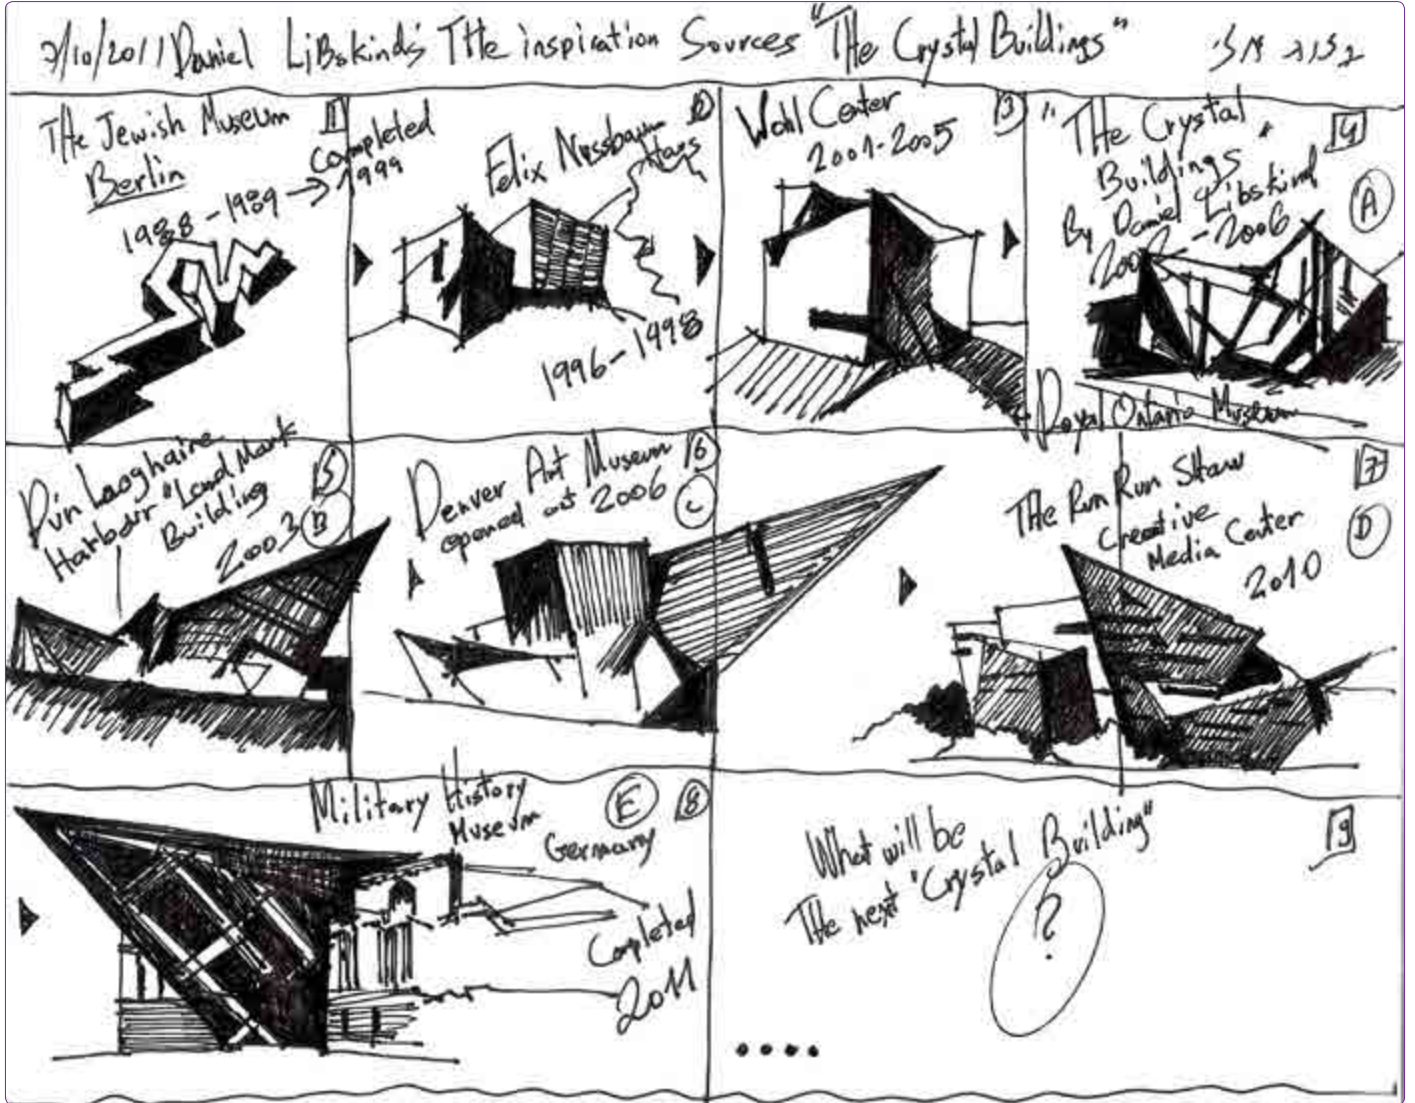 7/10/2011 Daniel LiBskinds' THe inspiration Sources "THe Crystal Buildings"
THe Jewish Museum
Berlin
1988-1989 → Completed
1999
1
Felix Nussbaum
Haus
2
1996-1998
Wohl Center
2001-2005
3
"THe Crystal
Buildings"
By Daniel Libskind
2002-2006
4
A
Royal Ontario Museum
Dún Laoghaire
Harbour "Land Mark
Building
2003
5
B
Denver Art Museum
opened at 2006
6
C
THe Run Run Shaw
Creative
Media Center
2010
7
D
Military History
Museum
Germany
E
8
Completed
2011
What will be
THe next "Crystal Building"
?
9
....